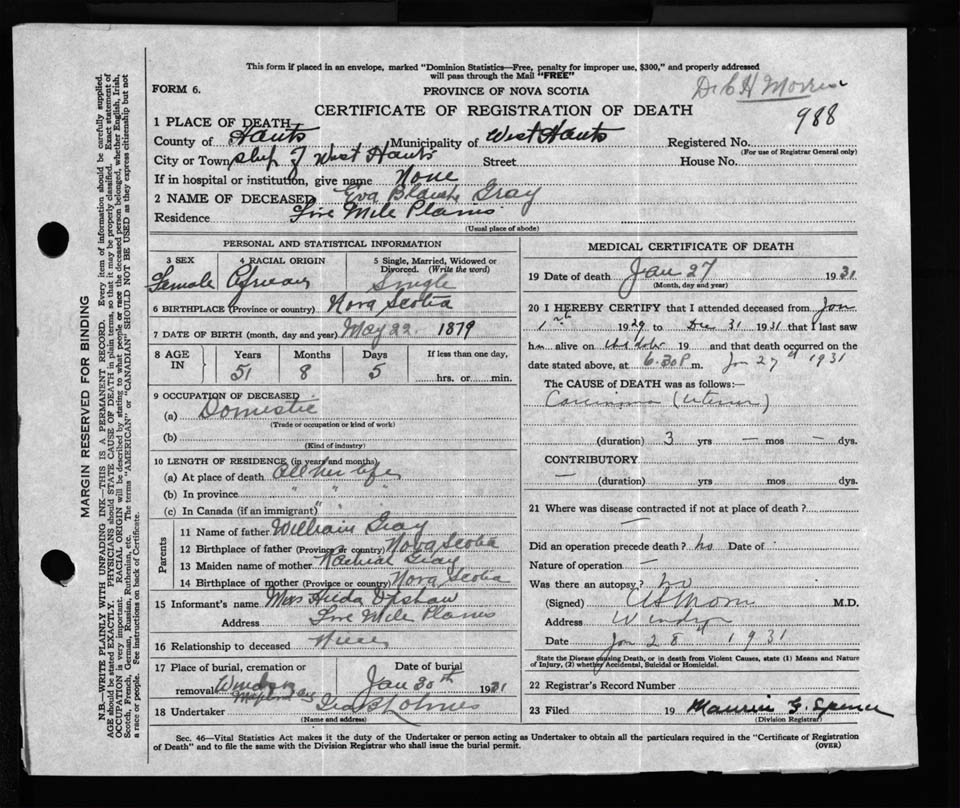 This form if placed in an envelope, marked "Dominion Statistics—Free, penalty for improper use, $300," and properly addressed
will pass through the Mail "FREE"
FORM 6.
PROVINCE OF NOVA SCOTIA
Dr C H Morris
CERTIFICATE OF REGISTRATION OF DEATH
988
1 PLACE OF DEATH
County of Hants Municipality of West Hants Registered No.
(For use of Registrar General only)
City or Town ship of West Hants Street House No.
If in hospital or institution, give name None
2 NAME OF DECEASED Eva Blanche Gray
Residence Five Mile Plains
(Usual place of abode)
PERSONAL AND STATISTICAL INFORMATION
3 SEX 4 RACIAL ORIGIN 5 Single, Married, Widowed or
Divorced. (Write the word)
Female African Single
6 BIRTHPLACE (Province or country) Nova Scotia
7 DATE OF BIRTH (month, day and year) May 22 1879
8 AGE IN Years Months Days If less than one day,
51 8 5 hrs. or min.
9 OCCUPATION OF DECEASED
(a) Domestic
(Trade or occupation or kind of work)
(b)
(Kind of industry)
10 LENGTH OF RESIDENCE (in years and months)
(a) At place of death All her life
(b) In province " " "
(c) In Canada (if an immigrant) " "
Parents
11 Name of father William Gray
12 Birthplace of father (Province or country) Nova Scotia
13 Maiden name of mother Rachial Gray
14 Birthplace of mother (Province or country) Nova Scotia
15 Informant's name Mrs Hilda Upshaw
Address Five Mile Plains
16 Relationship to deceased Niece
17 Place of burial, cremation or Date of burial
removal Windsor Jan 30th 1931
18 Undertaker Holmes
(Name and address)
MEDICAL CERTIFICATE OF DEATH
19 Date of death Jan 27 1931
(Month, day and year)
20 I HEREBY CERTIFY that I attended deceased from Jan
1st 1929 to Dec 31 1931 that I last saw
h alive on 19 and that death occurred on the
date stated above, at 6.30 P m. Jan 27th 1931
The CAUSE OF DEATH was as follows:—
Carcinoma (Uterus)
(duration) 3 yrs — mos — dys.
CONTRIBUTORY
— (duration) yrs mos dys.
21 Where was disease contracted if not at place of death?
—
Did an operation precede death? No Date of
Nature of operation —
Was there an autopsy? No
(Signed) M.D.
Address Windsor
Date Jan 28th 1931
State the Disease causing Death, or in death from Violent Causes, state (1) Means and Nature
of Injury, (2) whether Accidental, Suicidal or Homicidal.
22 Registrar's Record Number
23 Filed 19 Maurice G. Spence
(Division Registrar)
Sec. 46—Vital Statistics Act makes it the duty of the Undertaker or person acting as Undertaker to obtain all the particulars required in the "Certificate of Registration
of Death" and to file the same with the Division Registrar who shall issue the burial permit.
(OVER)
MARGIN RESERVED FOR BINDING
N.B.—WRITE PLAINLY WITH UNFADING INK—THIS IS A PERMANENT RECORD. Every item of information should be carefully supplied.
AGE should be stated EXACTLY. PHYSICIANS should STATE CAUSE OF DEATH in plain terms, so that it may be properly classified. Exact statement of
OCCUPATION is very important. RACIAL ORIGIN will be described by stating to what people or race the deceased person belonged, whether English, Irish,
Scotch, French, German, Russian, Ruthenian, etc. The terms "AMERICAN" or "CANADIAN" SHOULD NOT BE USED as they express citizenship but not
a race or people. See instructions on back of Certificate.